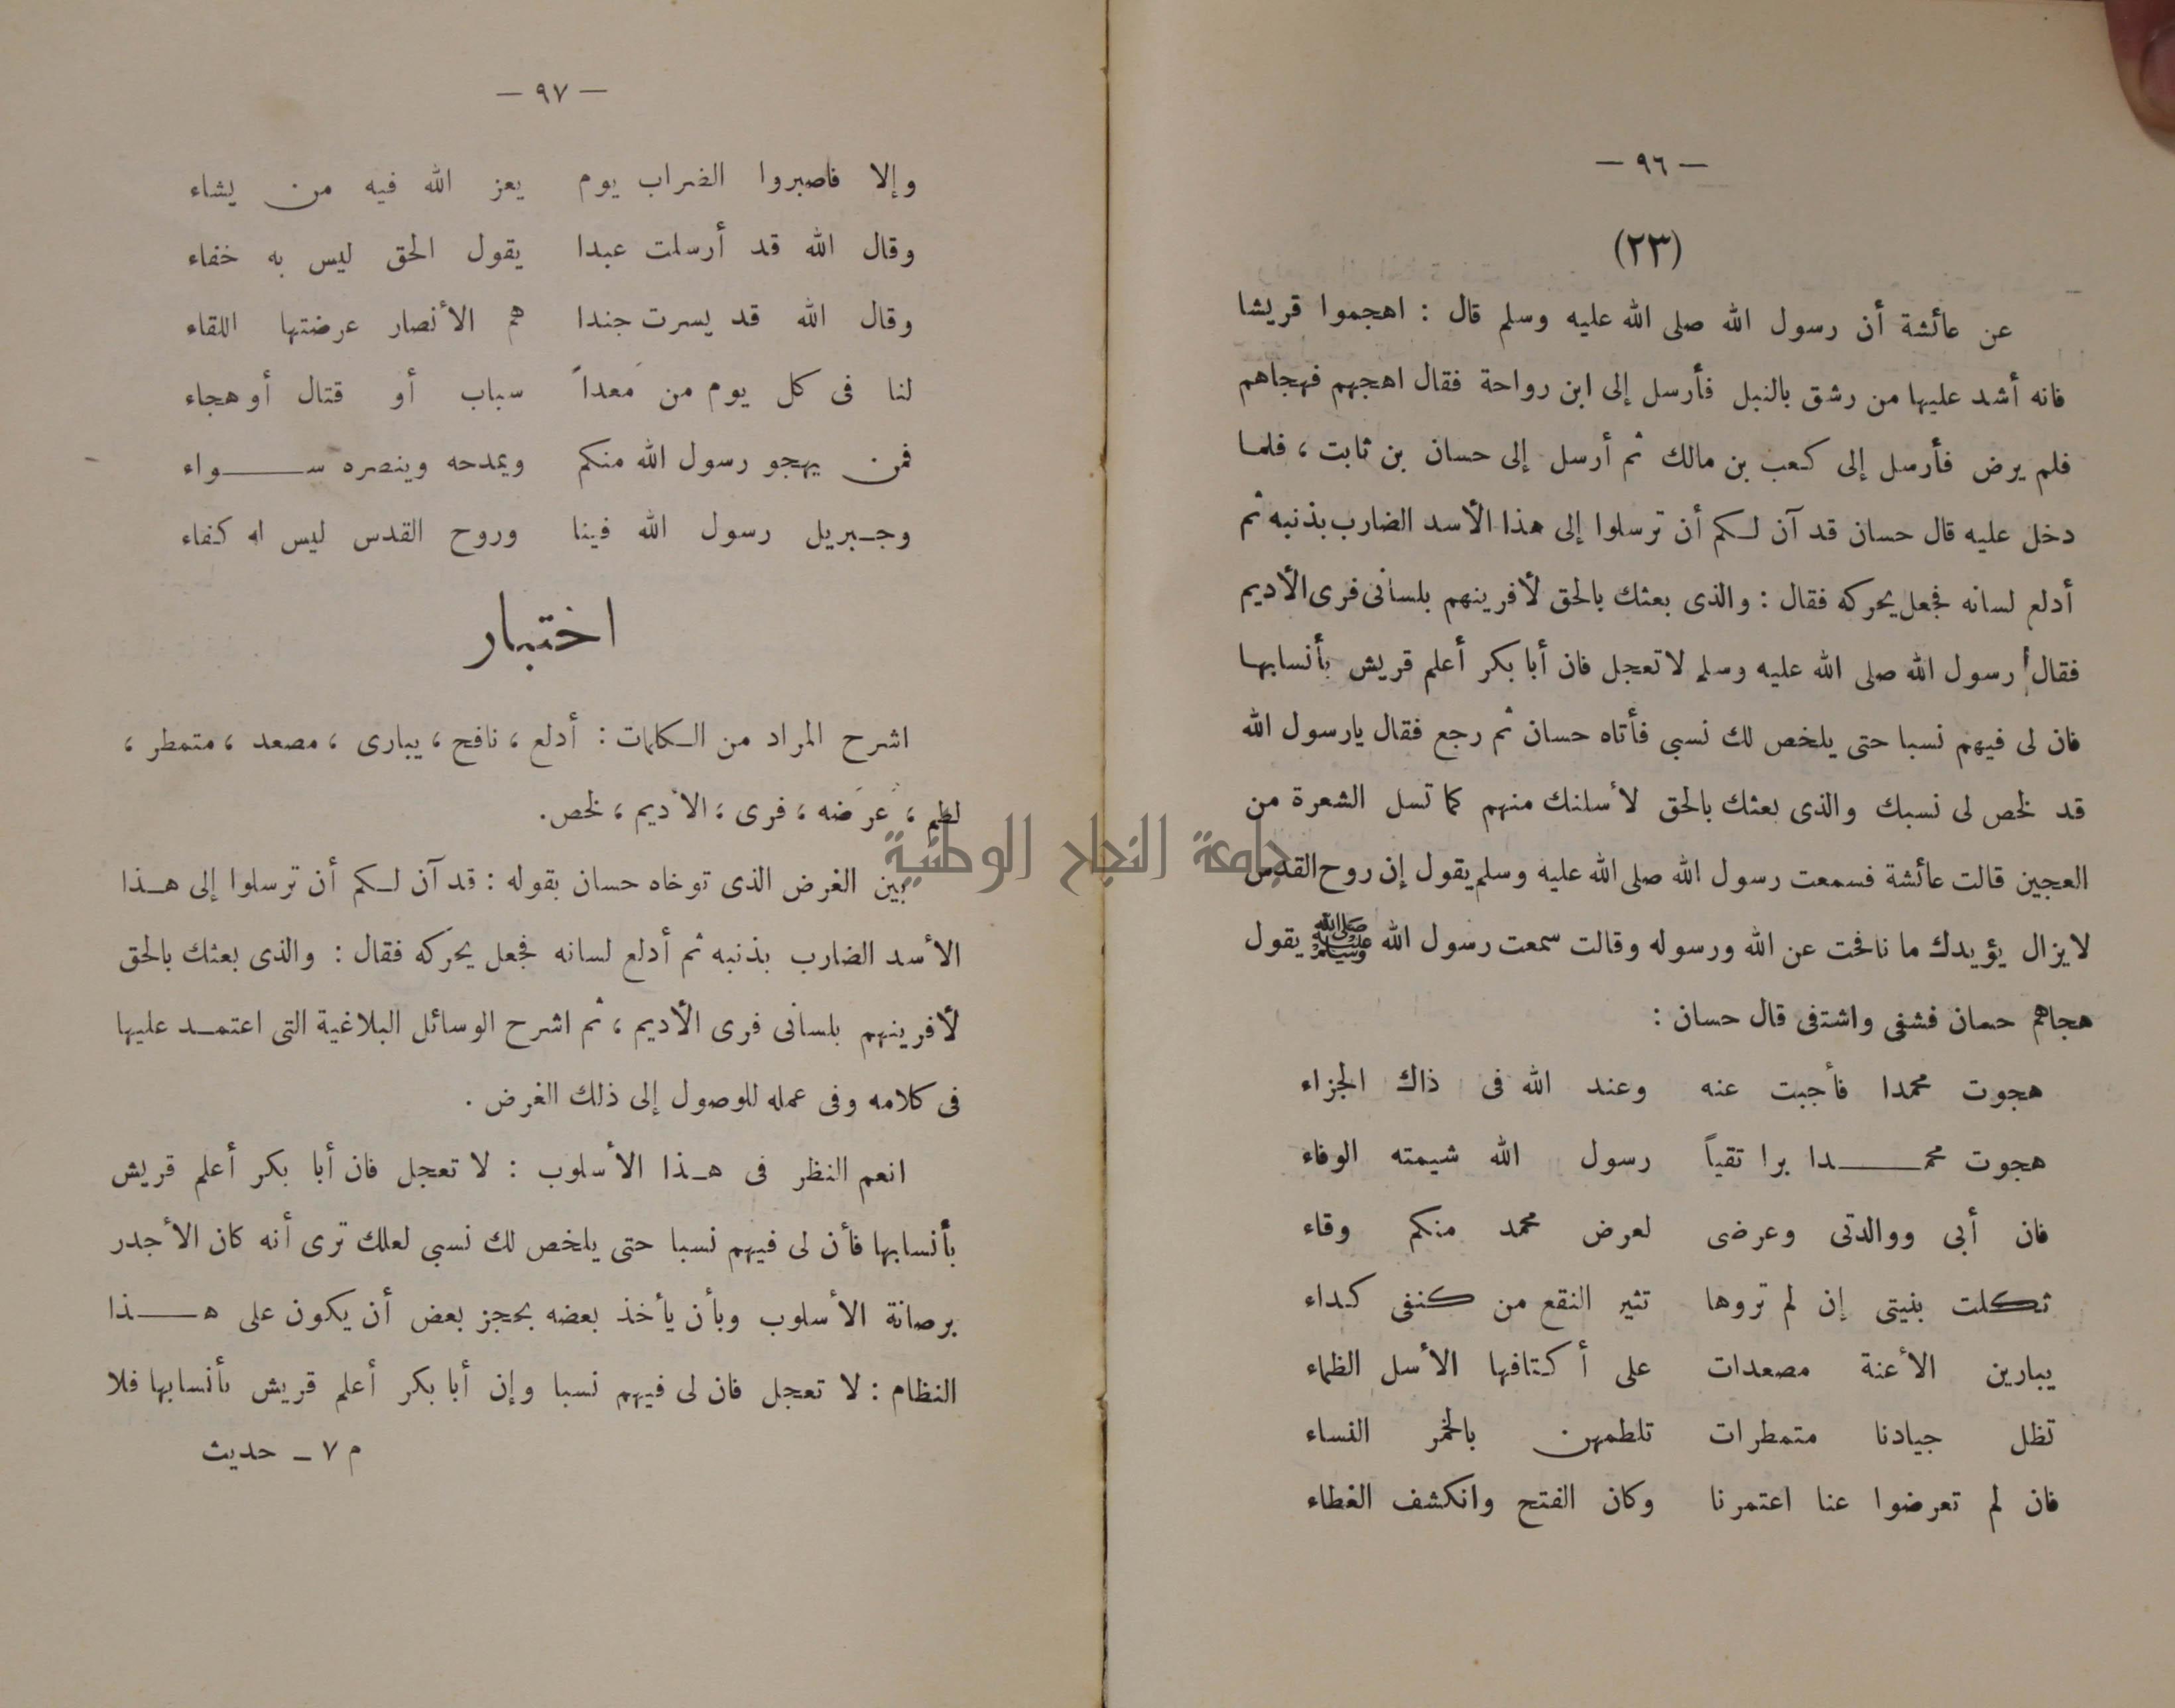 — ٩٦ —
(٢٣)
عن عائشة أن رسول الله صلى الله عليه وسلم قال : اهجموا قريشا
فانه أشد عليها من رشق بالنبل فأرسل إلى ابن رواحة فقال اهجهم فهجاهم
فلم يرض فأرسل إلى كعب بن مالك ثم أرسل إلى حسان بن ثابت ، فلما
دخل عليه قال حسان قد آن لكم أن ترسلوا إلى هذا الأسد الضارب بذنبه ثم
أدلع لسانه فجعل يحركه فقال : والذى بعثك بالحق لأفرينهم بلسانى فرى الأديم
فقال رسول الله صلى الله عليه وسلم لا تعجل فان أبا بكر أعلم قريش بأنسابها
فان لى فيهم نسبا حتى يلخص لك نسبى فأتاه حسان ثم رجع فقال يارسول الله
قد لخص لى نسبك والذى بعثك بالحق لأسلنك منهم كما تسل الشعرة من
العجين قالت عائشة فسمعت رسول الله صلى الله عليه وسلم يقول إن روح القدس
لا يزال يؤيدك ما نافحت عن الله ورسوله وقالت سمعت رسول الله ﷺ يقول
هجاهم حسان فشفى واشتفى قال حسان :
هجوت محمدا فأجبت عنه وعند الله فى ذاك الجزاء
هجوت محمدا برا تقياً رسول الله شيمته الوفاء
فان أبى ووالدتى وعرضى لعرض محمد منكم وقاء
ثكلت بنيتى إن لم تروها تثير النقع من كنفى كداء
يبارين الأعنة مصعدات على أكتافها الأسل الظماء
تظل جيادنا متمطرات تلطمهن بالخمر النساء
فان لم تعرضوا عنا اعتمرنا وكان الفتح وانكشف الغطاء
— ٩٧ —
وإلا فاصبروا الضراب يوم يعز الله فيه من يشاء
وقال الله قد أرسلت عبدا يقول الحق ليس به خفاء
وقال الله قد يسرت جندا هم الأنصار عرضتها اللقاء
لنا فى كل يوم من معداً سباب أو قتال أو هجاء
فمن يهجو رسول الله منكم ويمدحه وينصره سواء
وجبريل رسول الله فينا وروح القدس ليس له كفاء
اختبار
اشرح المراد من الكلمات : أدلع ، نافح ، يبارى ، مصعد ، متمطر ،
لطم ، عرضه ، فرى ، الأديم ، لخص .
بين الغرض الذى توخاه حسان بقوله : قد آن لكم أن ترسلوا إلى هذا
الأسد الضارب بذنبه ثم أدلع لسانه فجعل يحركه فقال : والذى بعثك بالحق
لأفرينهم بلسانى فرى الأديم ، ثم اشرح الوسائل البلاغية التى اعتمد عليها
فى كلامه وفى عمله للوصول إلى ذلك الغرض .
انعم النظر فى هذا الأسلوب : لا تعجل فان أبا بكر أعلم قريش
بأنسابها فأن لى فيهم نسبا حتى يلخص لك نسبى لعلك ترى أنه كان الأجدر
برصانة الأسلوب وبأن يأخذ بعضه بحجز بعض أن يكون على هذا
النظام : لا تعجل فان لى فيهم نسبا وإن أبا بكر أعلم قريش بأنسابها فلا
م ٧ ـ حديث
جامعة النجاح الوطنية